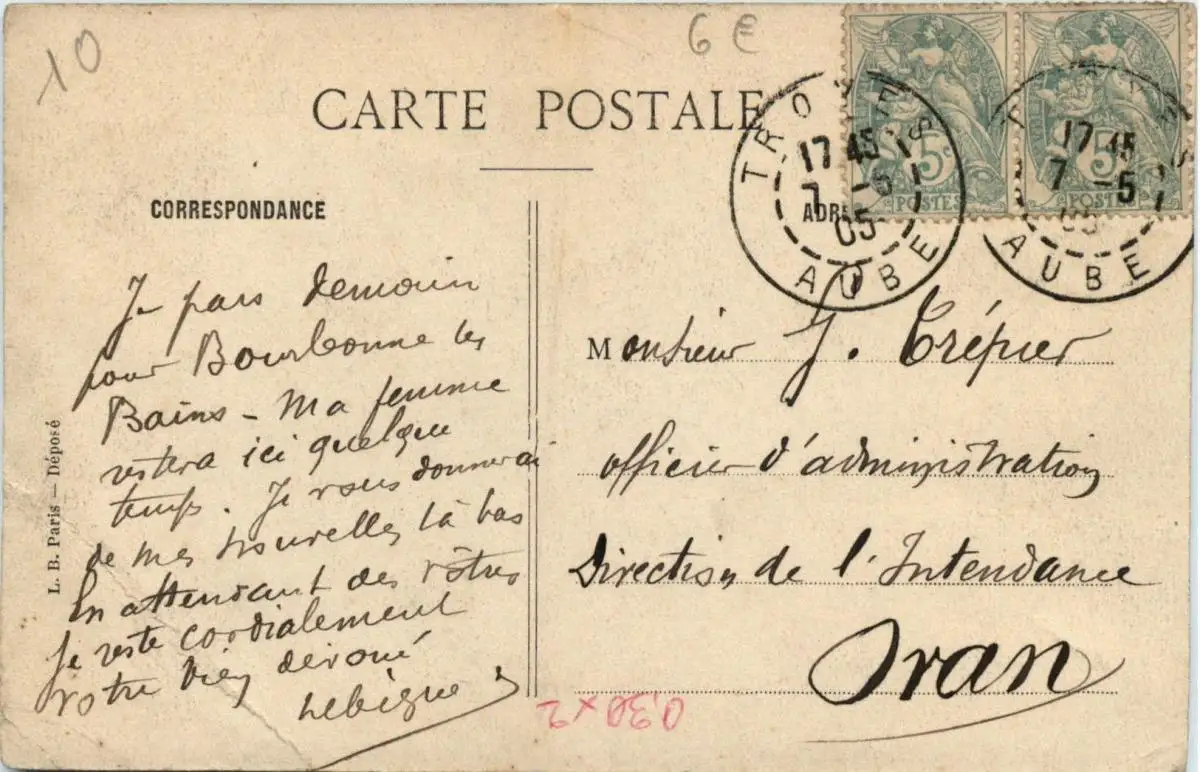 10
6 €
CARTE POSTALE
CORRESPONDANCE
ADRE
TROYES
17 45
7 -5
05
AUBE
5c
POSTES
17 45
7 -5
05
AUBE
5c
POSTES
Je pars demain
pour Bourbonne les
Bains - Ma femme
restera ici quelque
temps. Je vous donnerai
de mes nouvelles là bas
En attendant des vôtres
Je reste cordialement
votre bien dévoué
Lebigue
Monsieur J. Trépier
officier d'administration
Direction de l'Intendance
Oran
L. B. Paris — Déposé
0,30 x 2